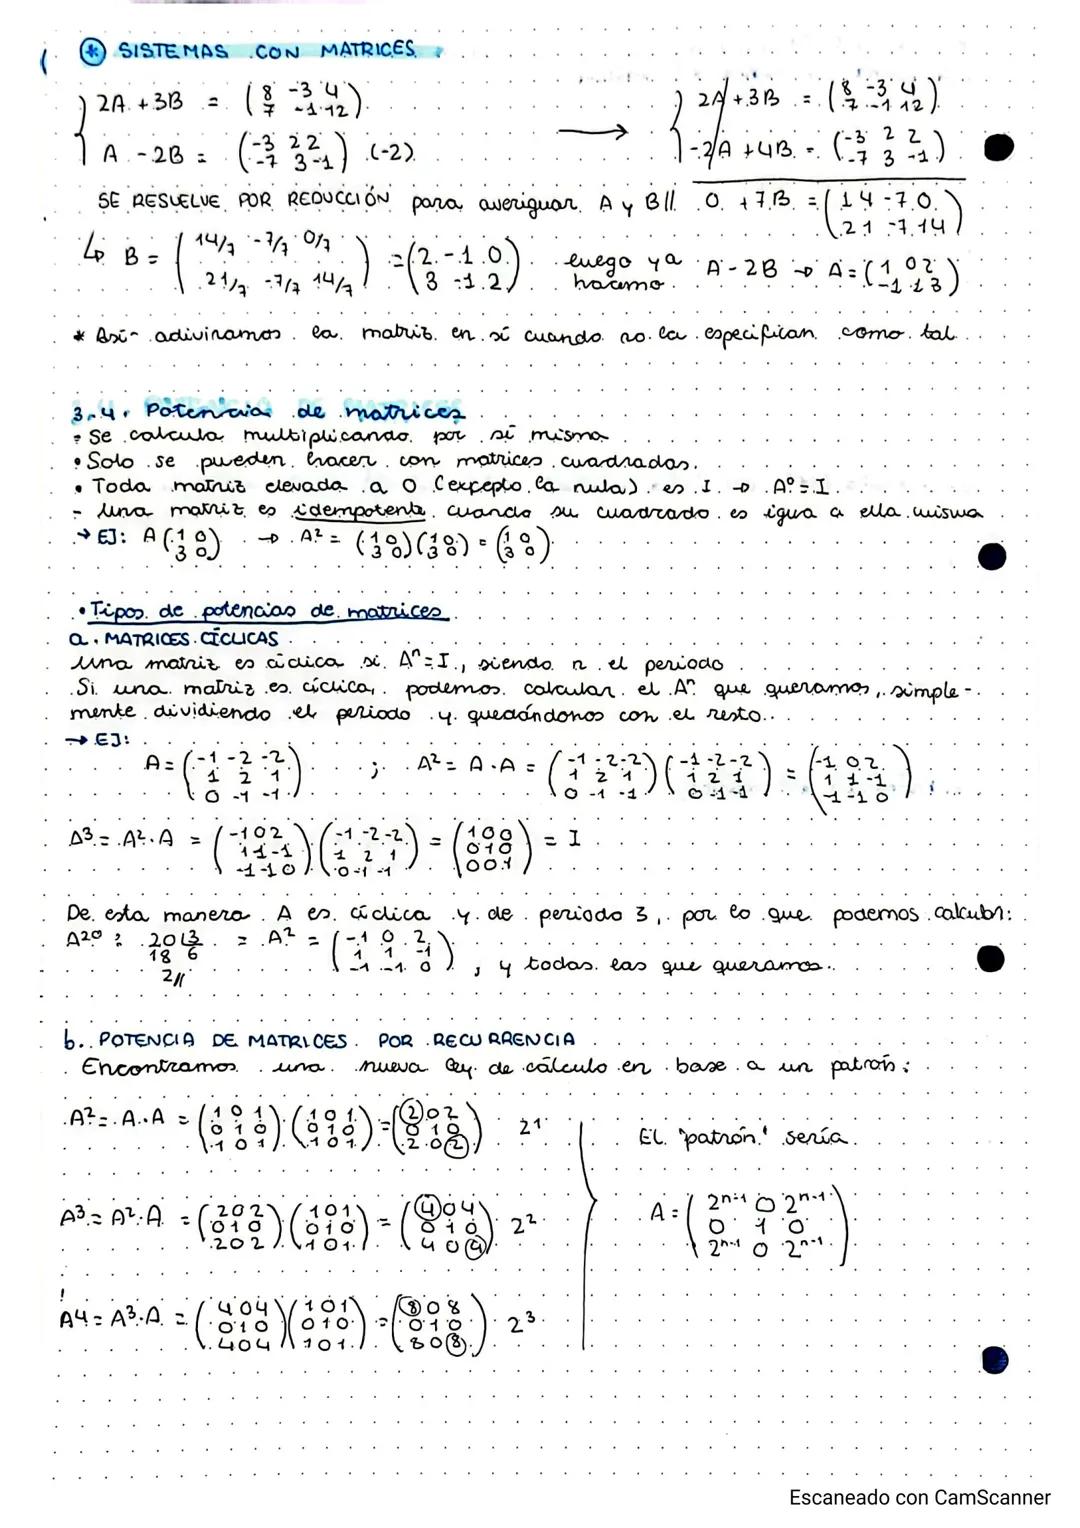 * SISTEMAS CON MATRICES
2A + 3B = (8 -3 4
7 -1 12)
A - 2B = (-3 2 2
-7 3 -1) (-2)
→
2A + 3B = (8 -3 4
7 -1 12)
-2A + 4B = (-3 2 2
-7 3 -1)
0 + 7B = (14 -7 0
21 -7 14)
SE RESUELVE POR REDUCCIÓN para averiguar A y B//
↳ B = (14/7 -7/7 0/7
21/7 -7/7 14/7) = (2 -1 0
3 -1 2)
luego ya hacemo A - 2B → A = (1 0 2
-1 1 3)
* Así adivinamos la matriz en sí cuando no la especifican como tal
3.4. Potencias de matrices
• Se calcula multiplicando por sí misma
• Solo se pueden hacer con matrices cuadradas.
• Toda matriz elevada a 0 (excepto la nula) es I → A⁰ = I
- Una matriz es idempotente cuando su cuadrado es igua a ella misma
→ EJ: A (1 0
3 0) → A² = (1 0
3 0)(1 0
3 0) = (1 0
3 0)
• Tipos de potencias de matrices
a. MATRICES CÍCLICAS
Una matriz es cíclica si Aⁿ = I, siendo n el periodo
Si una matriz es cíclica, podemos calcular el Aⁿ que queramos, simple-
mente dividiendo el periodo y quedándonos con el resto.
→ EJ:
A = (-1 -2 -2
1 2 1
0 -1 -1) ; A² = A·A = (-1 -2 -2
1 2 1
0 -1 -1)(-1 -2 -2
1 2 1
0 -1 -1) = (-1 0 2
1 1 -1
-1 -1 0);
A³ = A²·A = (-1 0 2
1 1 -1
-1 -1 0)(-1 -2 -2
1 2 1
0 -1 -1) = (1 0 0
0 1 0
0 0 1) = I
De esta manera A es cíclica y de periodo 3, por lo que podemos calcular:
A²⁰ : 20 |3
18 6
2//
= A² = (-1 0 2
1 1 -1
-1 -1 0), y todas las que queramos.
b. POTENCIA DE MATRICES POR RECURRENCIA
Encontramos una nueva ley de cálculo en base a un patrón:
A² = A·A = (1 0 1
0 1 0
1 0 1)·(1 0 1
0 1 0
1 0 1) = (2 0 2
0 1 0
2 0 2) 2¹
EL "patrón" sería
A³ = A²·A = (2 0 2
0 1 0
2 0 2)(1 0 1
0 1 0
1 0 1) = (4 0 4
0 1 0
4 0 4) 2²
A = (2ⁿ⁻¹ 0 2ⁿ⁻¹
0 1 0
2ⁿ⁻¹ 0 2ⁿ⁻¹)
A⁴ = A³·A = (4 0 4
0 1 0
4 0 4)(1 0 1
0 1 0
1 0 1) = (8 0 8
0 1 0
8 0 8) 2³
Escaneado con CamScanner